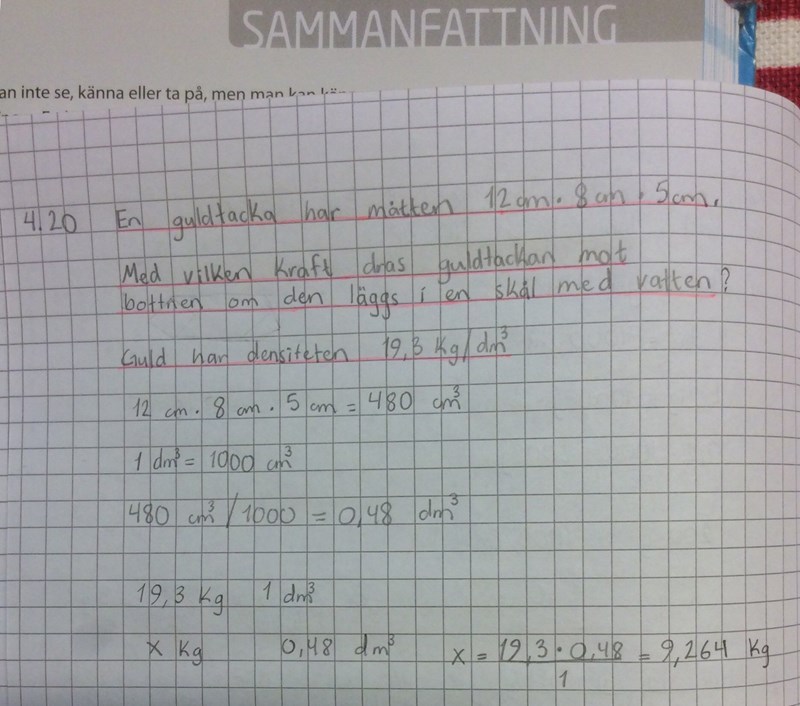 SAMMANFATTNING
an inte se, känna eller ta på, men man kan
4.20 En guldtacka har måtten 12 cm · 8 cm · 5 cm.
Med vilken kraft dras guldtackan mot
bottnen om den läggs i en skål med vatten?
Guld har densiteten 19,3 Kg/dm³
12 cm · 8 cm · 5 cm = 480 cm³
1 dm³ = 1000 cm³
480 cm³ / 1000 = 0,48 dm³
19,3 Kg 1 dm³
x Kg 0,48 dm³ x = 19,3 · 0,48 / 1 = 9,264 Kg